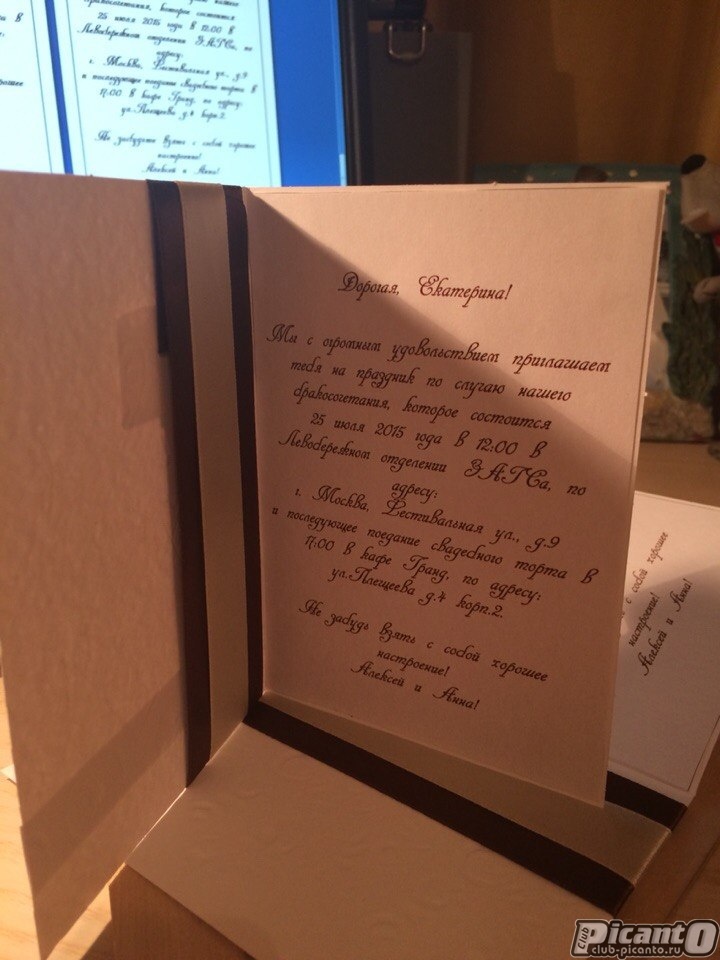 бракосочетания, которое состоится
25 июля 2015 года в 12:00 в
Левобережном отделении ЗАГСа, по
адресу:
г. Москва, Фестивальная ул., д.9
и последующее поедание свадебного торта в
17.00 в кафе Гранд, по адресу:
ул.Плещеева д.4 корп.2.
Не забудьте взять с собой хорошее
настроение!
Алексей и Анна!
Дорогая, Екатерина!
Мы с огромным удовольствием приглашаем
тебя на праздник по случаю нашего
бракосочетания, которое состоится
25 июля 2015 года в 12:00 в
Левобережном отделении ЗАГСа, по
адресу:
г. Москва, Фестивальная ул., д.9
и последующее поедание свадебного торта в
17:00 в кафе Гранд, по адресу:
ул.Плещеева д.4 корп.2.
Не забудь взять с собой хорошее
настроение!
Алексей и Анна!
с собой хорошее
настроение!
Алексей и Анна!
Club PicantO
club-picanto.ru